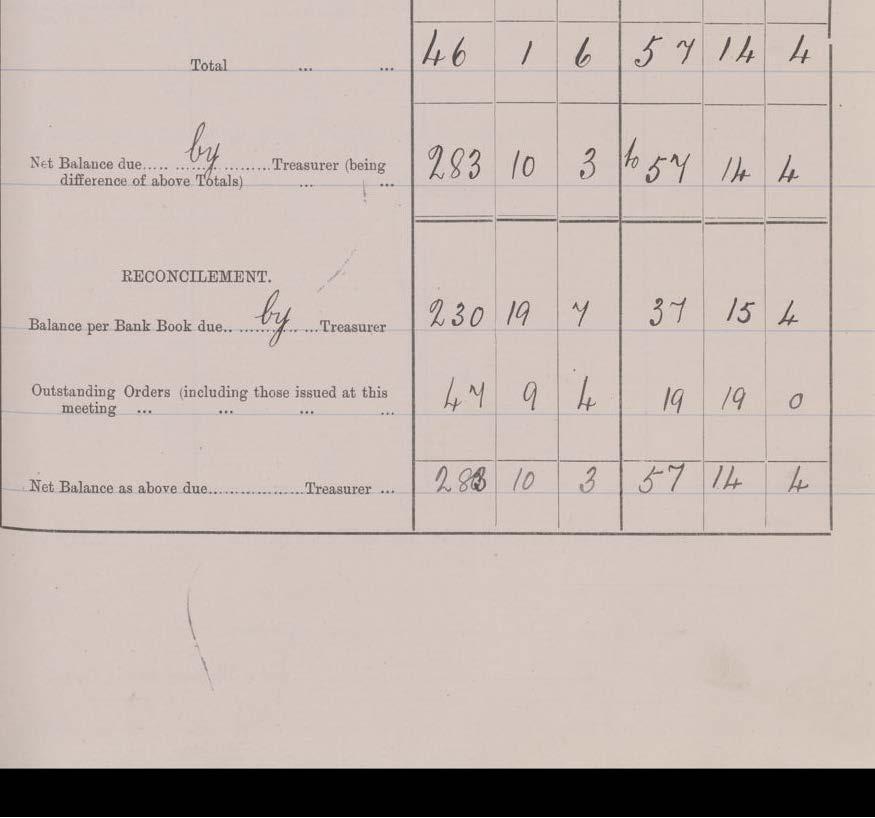 Total ... ... 46 1 6 57 14 4
Net Balance due..... by Treasurer (being 283 10 3 to 57 14 4
difference of above Totals) ... ...
RECONCILEMENT.
Balance per Bank Book due.. by Treasurer 230 19 7 37 15 4
Outstanding Orders (including those issued at this 47 9 4 19 19 0
meeting ... ... ... ...
Net Balance as above due...................Treasurer ... 283 10 3 57 14 4